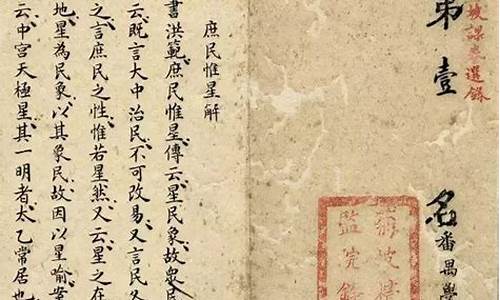 坡課卷選錄
第壹名
番禺學
菊坡精
監院錄
庶民惟星解
書洪範庶民惟星傳云星民象故眾民
云既言大中治民不可改易又言民各
之言庶民之性惟若星然又云星之在
地星為民象以其象民故因以星喻案
云中宮天極星其一明者太乙常居也